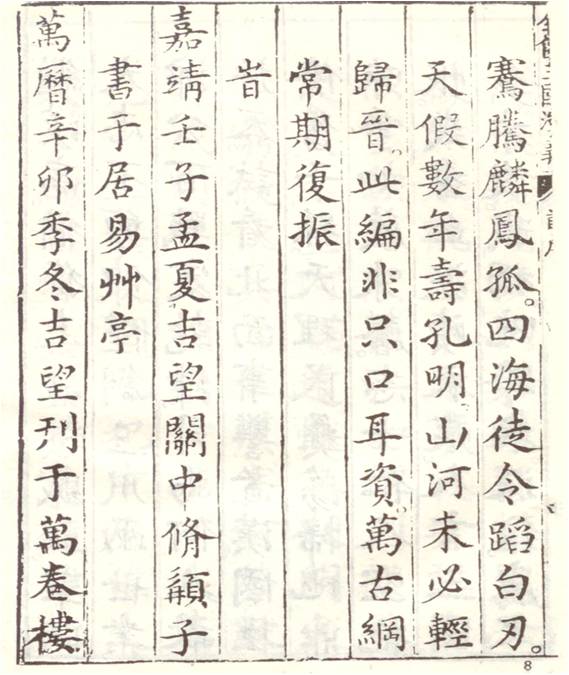 騫騰麟鳳孤。四海徒令蹈白刃。
天假數年壽孔明山河未必輕
歸晉、此編非只口耳資、萬古綱
常期復振
旹
嘉靖壬子孟夏吉望關中脩顈子
書于居易艸亭
萬曆辛卯季冬吉望刊于萬卷樓
8